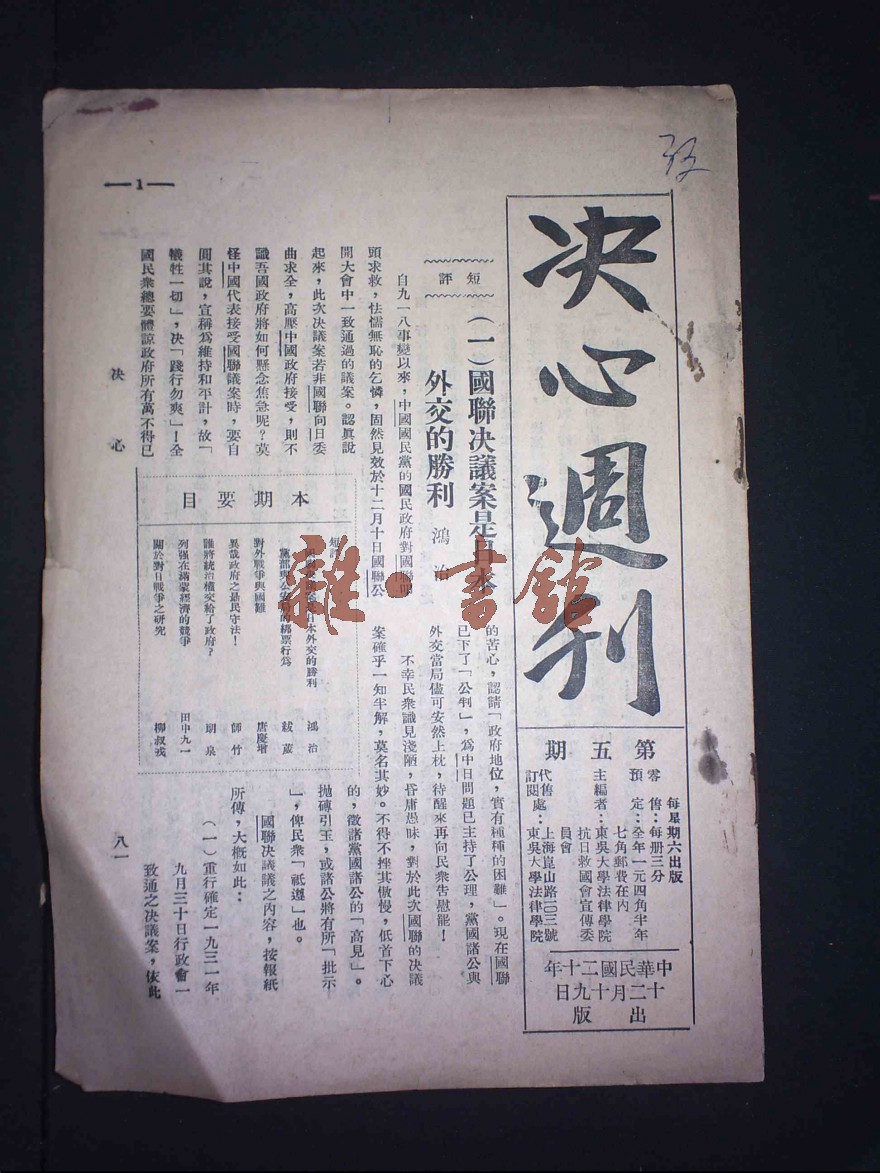 决心週刊
第五期
每星期六出版
零售：每册三分
預定：全年一元四角半年
七角郵費在內
主編者：東吳大學法律學院
抗日救國會宣傳委
員會
代售
訂閱處：上海崑山路一〇三號
東吳大學法律學院
中華民國二十年
十二月十九日
出版
短評
（一）國聯决議案是日本
外交的勝利
鴻治
自九一八事變以來，中國國民黨的國民政府對國聯叩
頭求救，怯懦無恥的乞憐，固然見效於十二月十日國聯公
開大會中一致通過的議案。認眞說
起來，此次决議案若非國聯向日委
曲求全，高壓中國政府接受，則不
識吾國政府將如何懸念焦急呢？莫
怪中國代表接受國聯議案時，要自
圓其說，宣稱爲維持和平計，故「
犧牲一切」，决「踐行勿爽」！全
國民衆總要體諒政府所有萬不得已
的苦心，認請「政府地位，實有種種的困難」。現在國聯
已下了「公判」，爲中日問題已主持了公理，黨國諸公與
外交當局儘可安然上枕，待醒來再向民衆告慰罷！
不幸民衆識見淺陋，昏庸愚味，對於此次國聯的决議
案確乎一知半解，莫名其妙。不得不挫其傲慢，低首下心
的，徵諸黨國諸公的「高見」。
抛磚引玉，或諸公將有所「批示
」，俾民衆「祇遵」也。
國聯决議議之內容，按報紙
所傳，大概如此：
（一）重行確定一九三一年
九月三十日行政會一
致通之决議案，依此
本期要目
短評
日本外交的勝利 鴻治
黨部與公安局的綁票行爲 紱葳
對外戰爭與國難 唐慶增
異哉政府之是民守法！ 師竹
誰將統治權交給了政府？ 明泉
列强在滿蒙經濟的競爭 田中九一
關於對日戰爭之研究 柳叔彧
决心
八一
1
雜·書舘